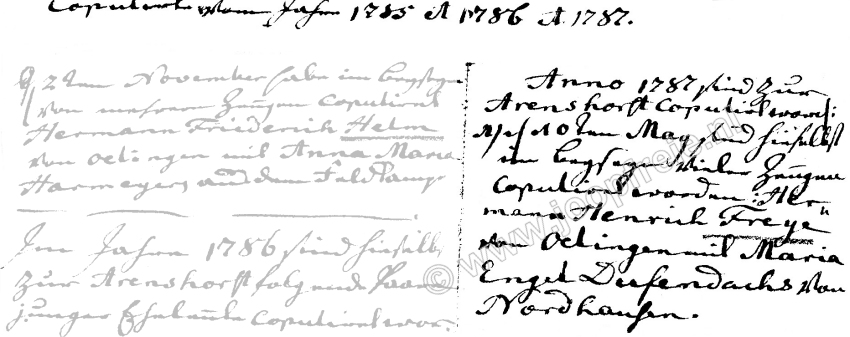 Copulierte vom Jahre 1785 et 1786 et 1787.
d 2ten November habe im beyseyn
von mehrern Zeugen Copuliret
Hermann Friederich Helm
von Oetingen mit Anna Maria
Harmeyers aus dem Feldkamp
Im Jahre 1786 sind hieselbst
zur Arenshorst folgende Paar
junger Eheleute Copuliret wor-
Anno 1787 sind zur
Arenshorst Copuliret word:
1) d 10ten May sind hieselbst
im beyseyn vieler Zeugen
Copuliret worden: Her-
mann Henrich Freye
von Oetingen mit Maria
Engel Diefendachs von
Nordhausen.
© www.joopfreije.nl